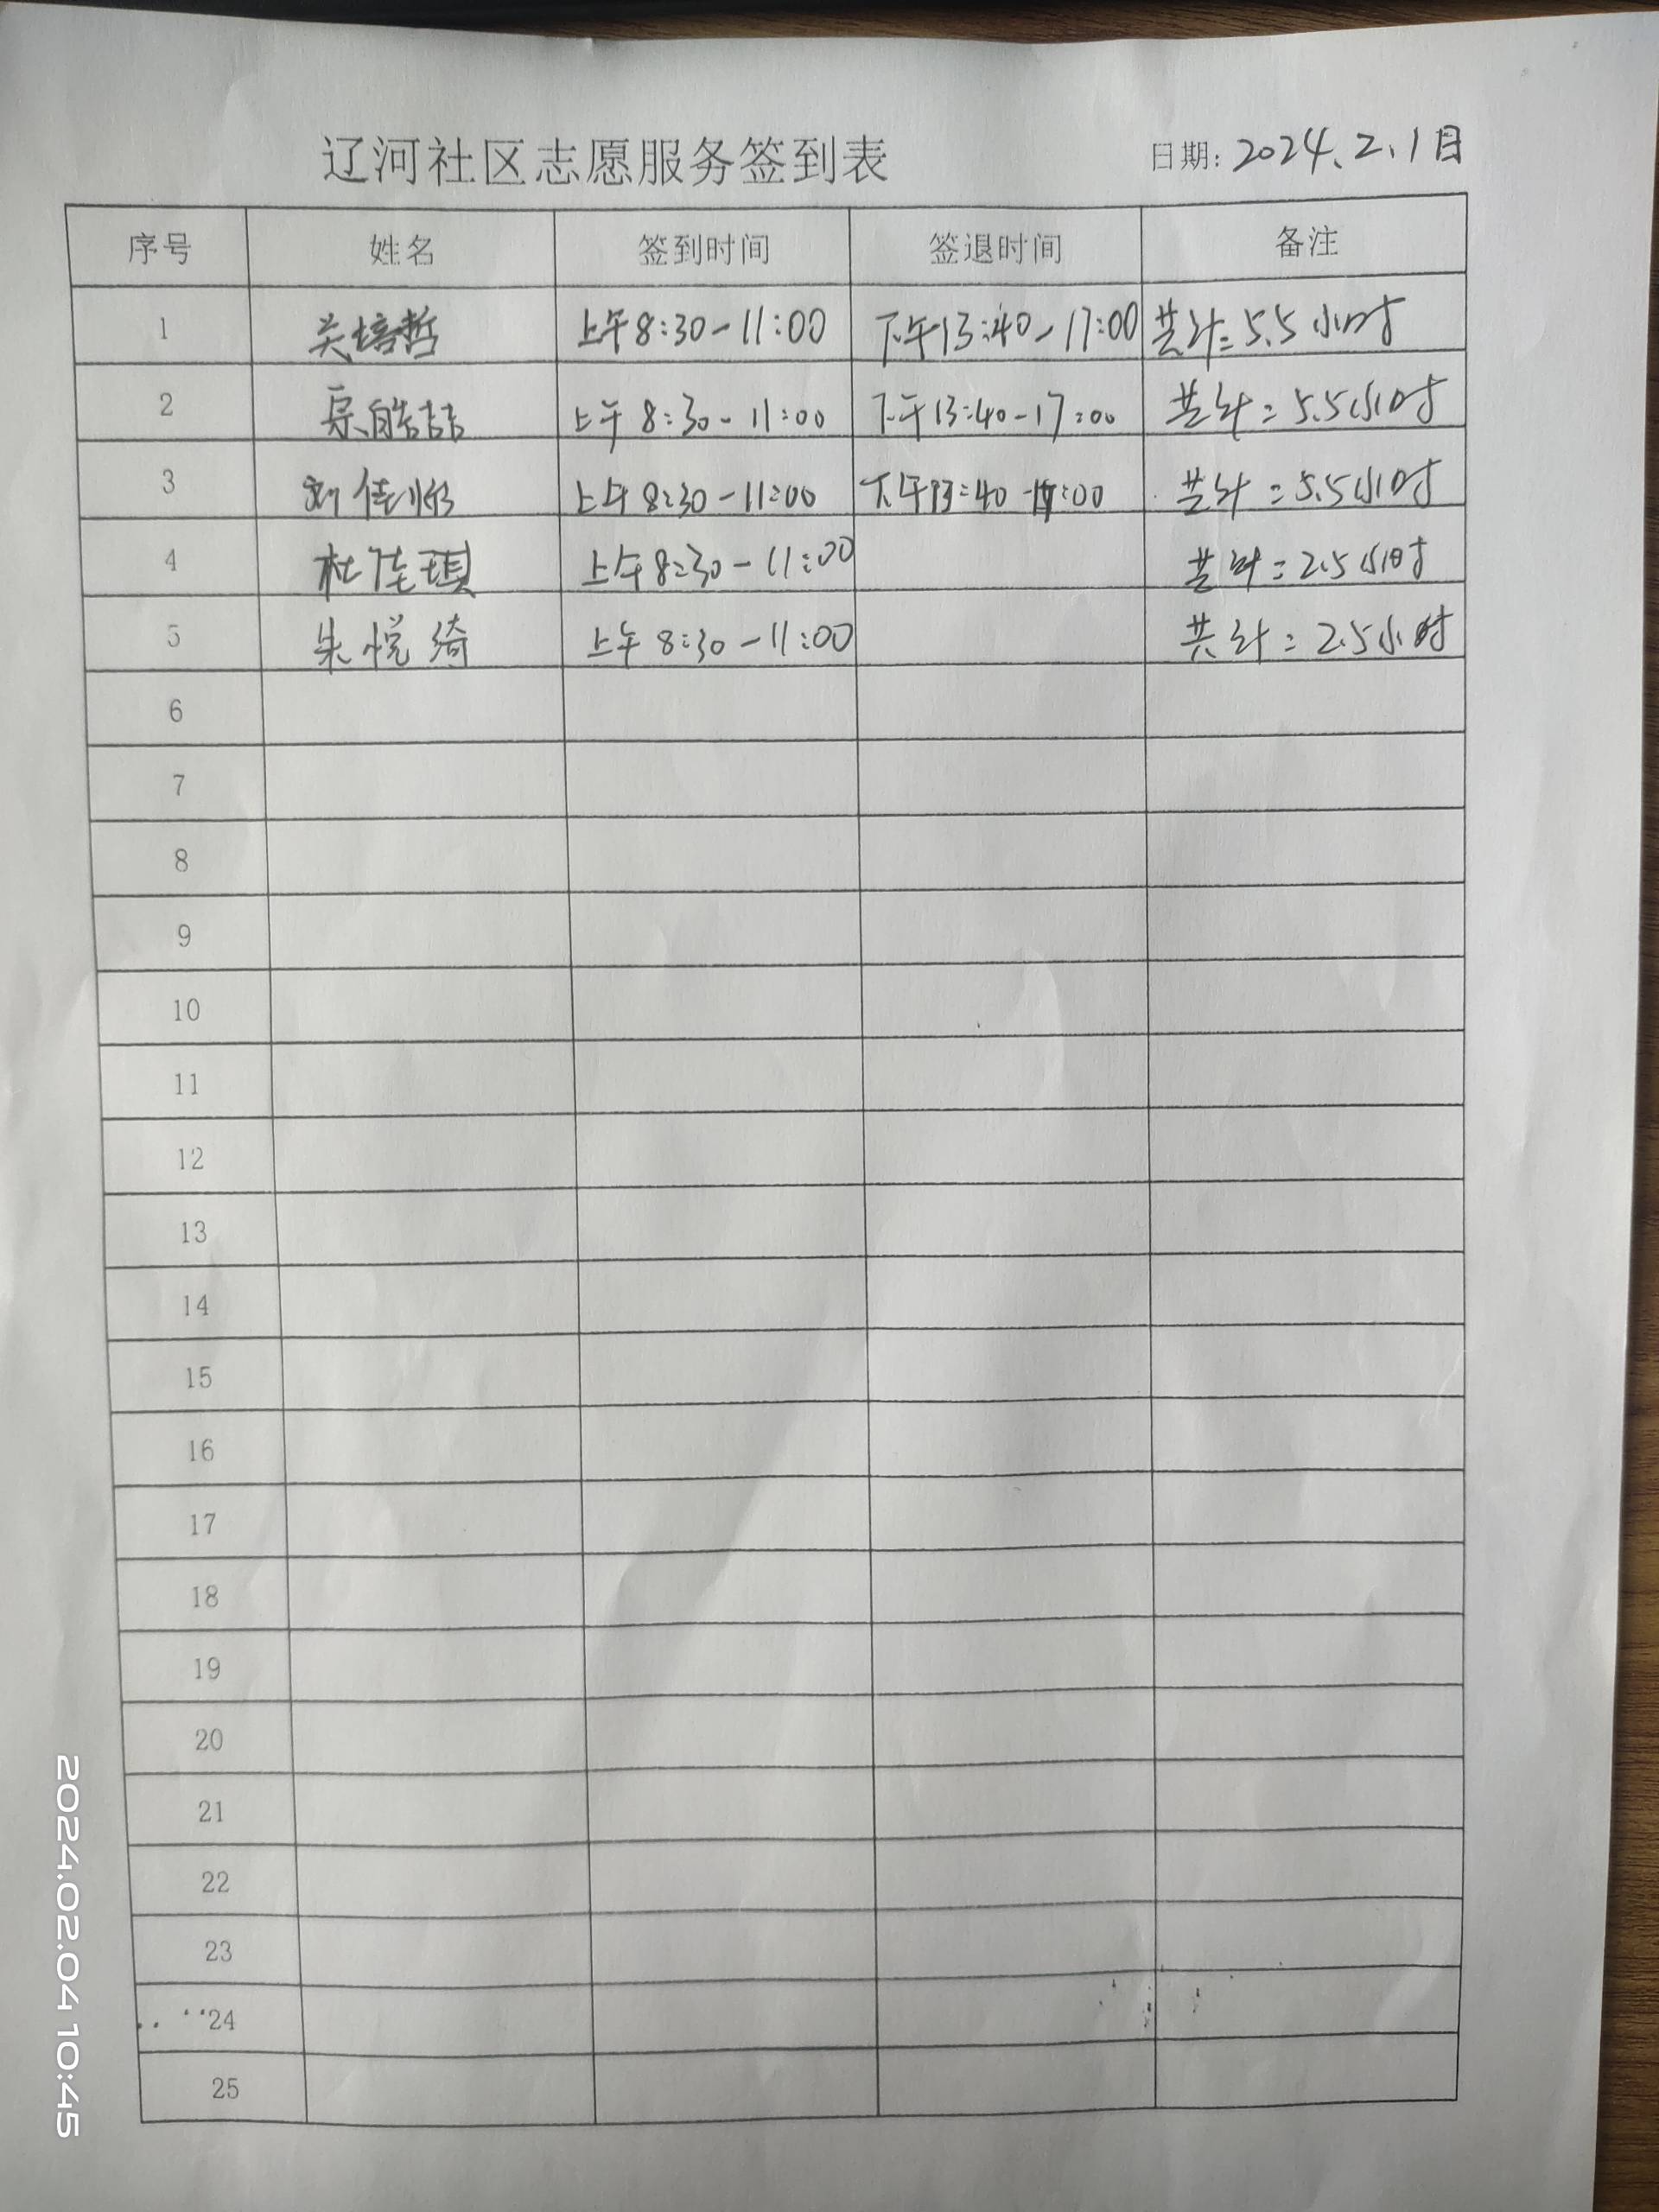 辽河社区志愿服务签到表 日期: 2024.2.1日
序号 姓名 签到时间 签退时间 备注
1 关培哲 上午8:30-11:00 下午13:40-17:00 共计=5.5小时
2 上午8:30-11:00 下午13:40-17:00 共计=5.5小时
3 刘佳 上午8:30-11:00 下午13:40-17:00 共计=5.5小时
4 杜佳琪 上午8:30-11:00 共计=2.5小时
5 朱悦绮 上午8:30-11:00 共计=2.5小时
6
7
8
9
10
11
12
13
14
15
16
17
18
19
20
21
22
23
24
25
2024.02.04 10:45